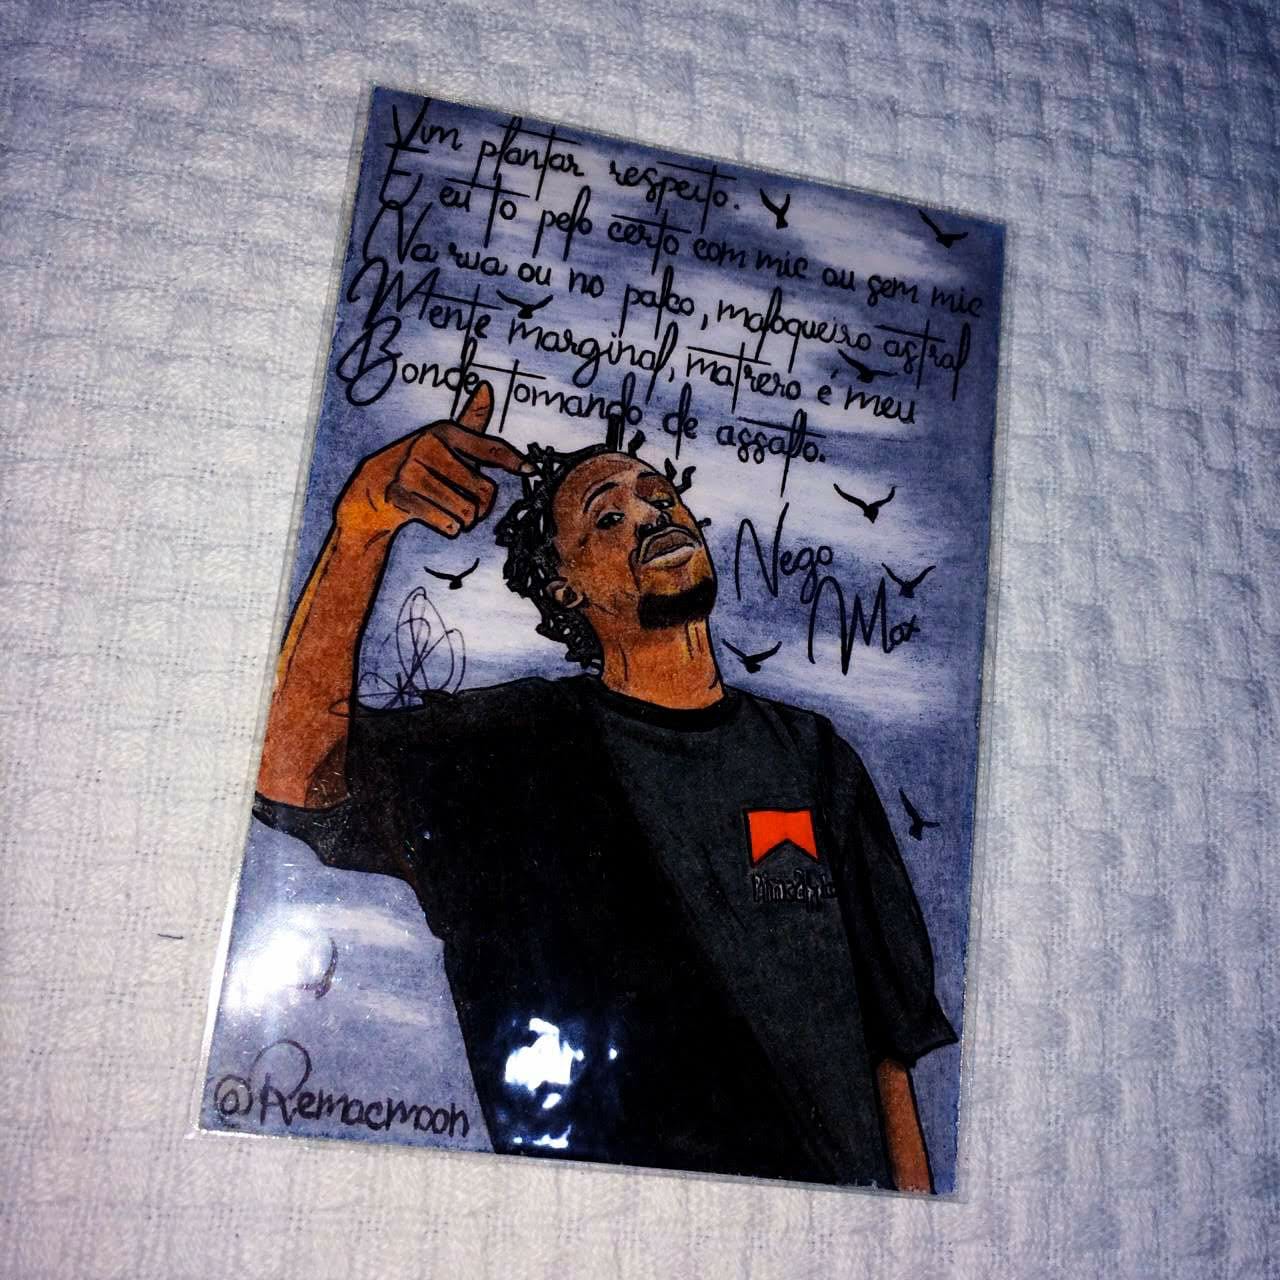 Vim plantar respeito.
E eu to pelo certo com mic ou sem mic
Na rua ou no palco, maloqueiro astral
Mente marginal, matrero é meu
Bonde tomando de assalto.
Nego
Max
@Remacmoon